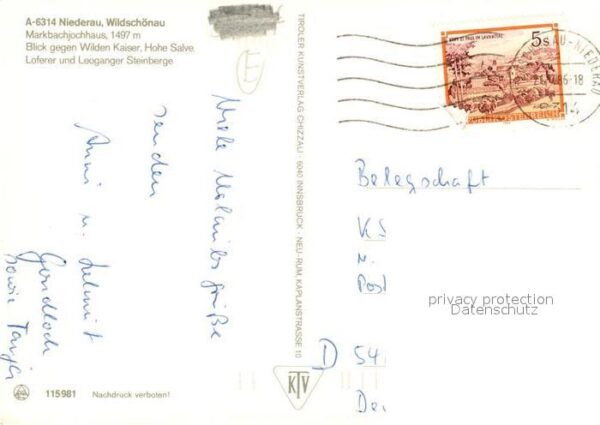 A-6314 Niederau, Wildschönau
Markbachjochhaus, 1497 m
Blick gegen Wilden Kaiser, Hohe Salve,
Loferer und Leoganger Steinberge
Viele Urlaubsgrüße
senden
Anni u. Helmut
sowie Tanja
115981 Nachdruck verboten!
TIROLER KUNSTVERLAG CHIZZALI · 6040 INNSBRUCK - NEU-RUM, KAPLANSTRASSE 10
KTV
5s
REPUBLIK ÖSTERREICH
AU-NIEDERAU
Belegschaft
KS
u.
Post
privacy protection
Datenschutz
D 54